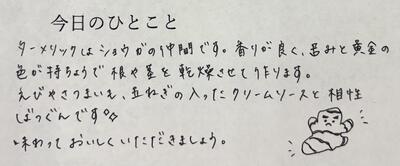 今日のひとこと
ターメリックはショウガの仲間です。香りが良く、苦みと黄金の
色が特ちょうで根や茎を乾燥させて作ります。
えびやさつまいも、玉ねぎの入ったクリームソースと相性
ばつぐんです。
味わっておいしくいただきましょう。